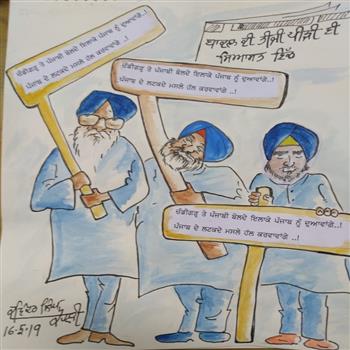 ਦੀ ਤੀਜੀ ਪੀੜੀ ਦੀ
ਸਿਆਸਤ
ਚੰਡੀਗੜ੍ਹ ਤੇ ਪੰਜਾਬੀ ਬੋਲਦੇ ਇਲਾਕੇ ਪੰਜਾਬ ਨੂੰ ਦੁਆਵਾਂਗੇ..!
ਪੰਜਾਬ ਦੇ ਲਟਕਦੇ ਮਸਲੇ ਹੱਲ ਕਰਵਾਵਾਂਗੇ ..!
ਚੰਡੀਗੜ੍ਹ ਤੇ ਪੰਜਾਬੀ ਬੋਲਦੇ ਇਲਾਕੇ ਪੰਜਾਬ ਨੂੰ ਦੁਆਵਾਂਗੇ..!
ਪੰਜਾਬ ਦੇ ਲਟਕਦੇ ਮਸਲੇ ਹੱਲ ਕਰਵਾਵਾਂਗੇ ..!
ਚੰਡੀਗੜ੍ਹ ਤੇ ਪੰਜਾਬੀ ਬੋਲਦੇ ਇਲਾਕੇ ਪੰਜਾਬ ਨੂੰ ਦੁਆਵਾਂਗੇ..!
ਪੰਜਾਬ ਦੇ ਲਟਕਦੇ ਮਸਲੇ ਹੱਲ ਕਰਵਾਵਾਂਗੇ ..!
16-5-19